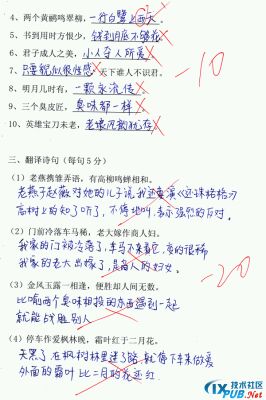 4、两个黄鹂鸣翠柳，一行白鹭上西天。
5、书到用时方恨少，钱到月底不够花。
6、君子成人之美，小人夺人所爱。
7、只要貌似很性感，天下谁人不识君。
8、明月几时有，一颗永流传。
9、三个臭皮匠，臭味都一样。
10、英雄宝刀未老，老娘风韵犹存
-10
三、翻译诗句（每句5分）
（1）老燕携雏弄语，有高柳鸣蝉相和。
老燕子赵薇对她的儿子说我还要演《还珠格格》
高树上的知了听了，不停地叫，表示强烈的反对。
（2）门前冷落车马稀，老大嫁作商人妇。
我家的门前冷落了，车马不来看它，真的很稀
我家的老大出嫁了，是商人的妇女。
-20
（3）金风玉露一相逢，便胜却人间无数。
比喻两个臭味相投的东西遇到一起
就能战胜别人
（4）停车作爱枫林晚，霜叶红于二月花。
天黑了在枫树林里迷了路，就停下车来做爱
外面的霜叶比二月的花还红.
技术社区
IXPUB.Net